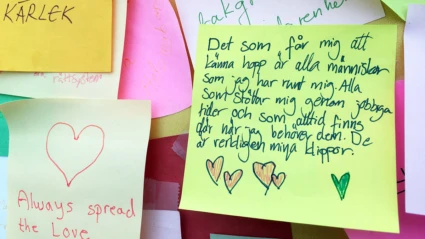 KÄRLEK
rättsystem
Det som får mig att
känna hopp är alla människor
som jag har runt mig. Alla
som stöttar mig genom jobbiga
tider och som alltid finns
där när jag behöver dem. De
är verkligen mina klippor.
Always spread
the Love.